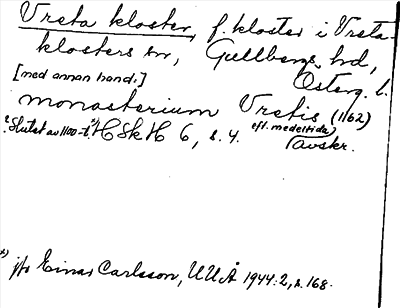 Vreta kloster, f. kloster i Vreta
klosters sn, Gullbergs hd,
Österg. l.
[med annan hand:]
monasterium Vretis (1162)
? Slutet av 1100-t. *) HSkH 6, s. 4. eft. medeltida avskr.
*) jfr Einar Carlsson, UUÅ 1944:2, s. 168.